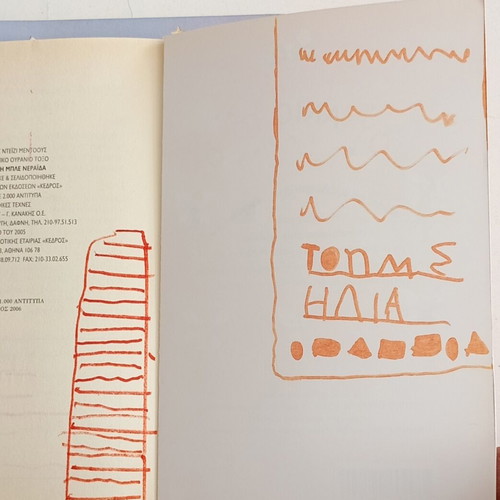 ΝΤΕΪΖΙ ΜΕΝΤΟΟΥΣ
ΙΚΟ ΟΥΡΑΝΙΟ ΤΟΞΟ
Η ΜΠΛΕ ΝΕΡΑΪΔΑ
Ε & ΣΕΛΙΔΟΠΟΙΗΘΗΚΕ
ΩΝ ΕΚΔΟΣΕΩΝ «ΚΕΔΡΟΣ»
Ε 2.000 ΑΝΤΙΤΥΠΑ
ΗΚΕΣ ΤΕΧΝΕΣ
– Γ. ΚΑΝΑΚΗΣ Ο.Ε.
ΡΤΗ, ΔΑΦΝΗ, ΤΗΛ. 210-97.51.512
Ο ΤΟΥ 2005
ΟΤΙΚΗΣ ΕΤΑΙΡΙΑΣ «ΚΕΔΡΟΣ»
3, ΑΘΗΝΑ 106 78
38.09.712 FAX: 210-33.02.655
1.000 ΑΝΤΙΤΥΠΑ
ΡΟΣ 2006
ΤΟΠΜΣ
ΗΛΙΑ